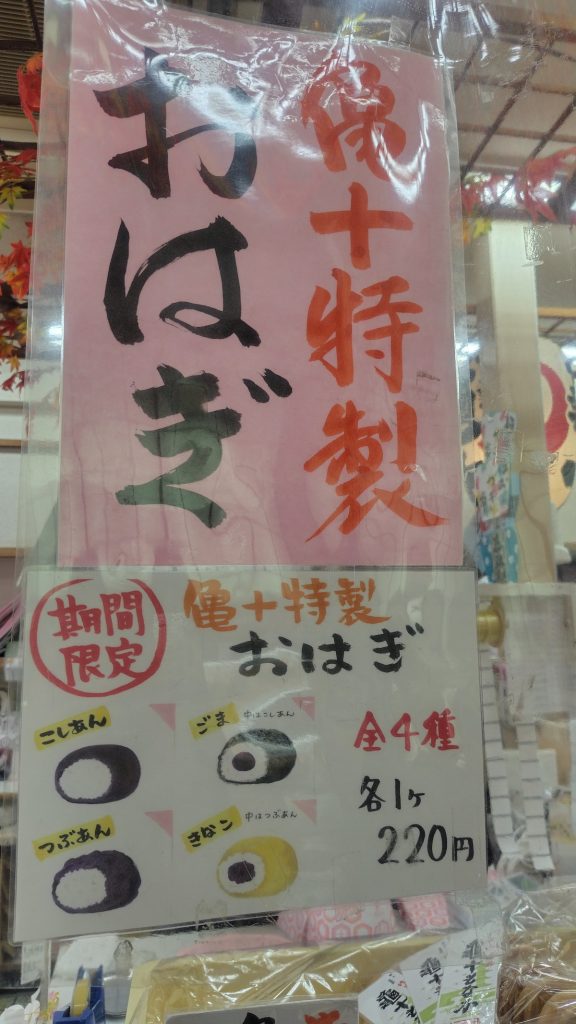 亀十特製
おはぎ
期間
限定
亀十特製
おはぎ
こしあん
ごま
中はこしあん
つぶあん
きなこ
中はつぶあん
全4種
各1ヶ
220円